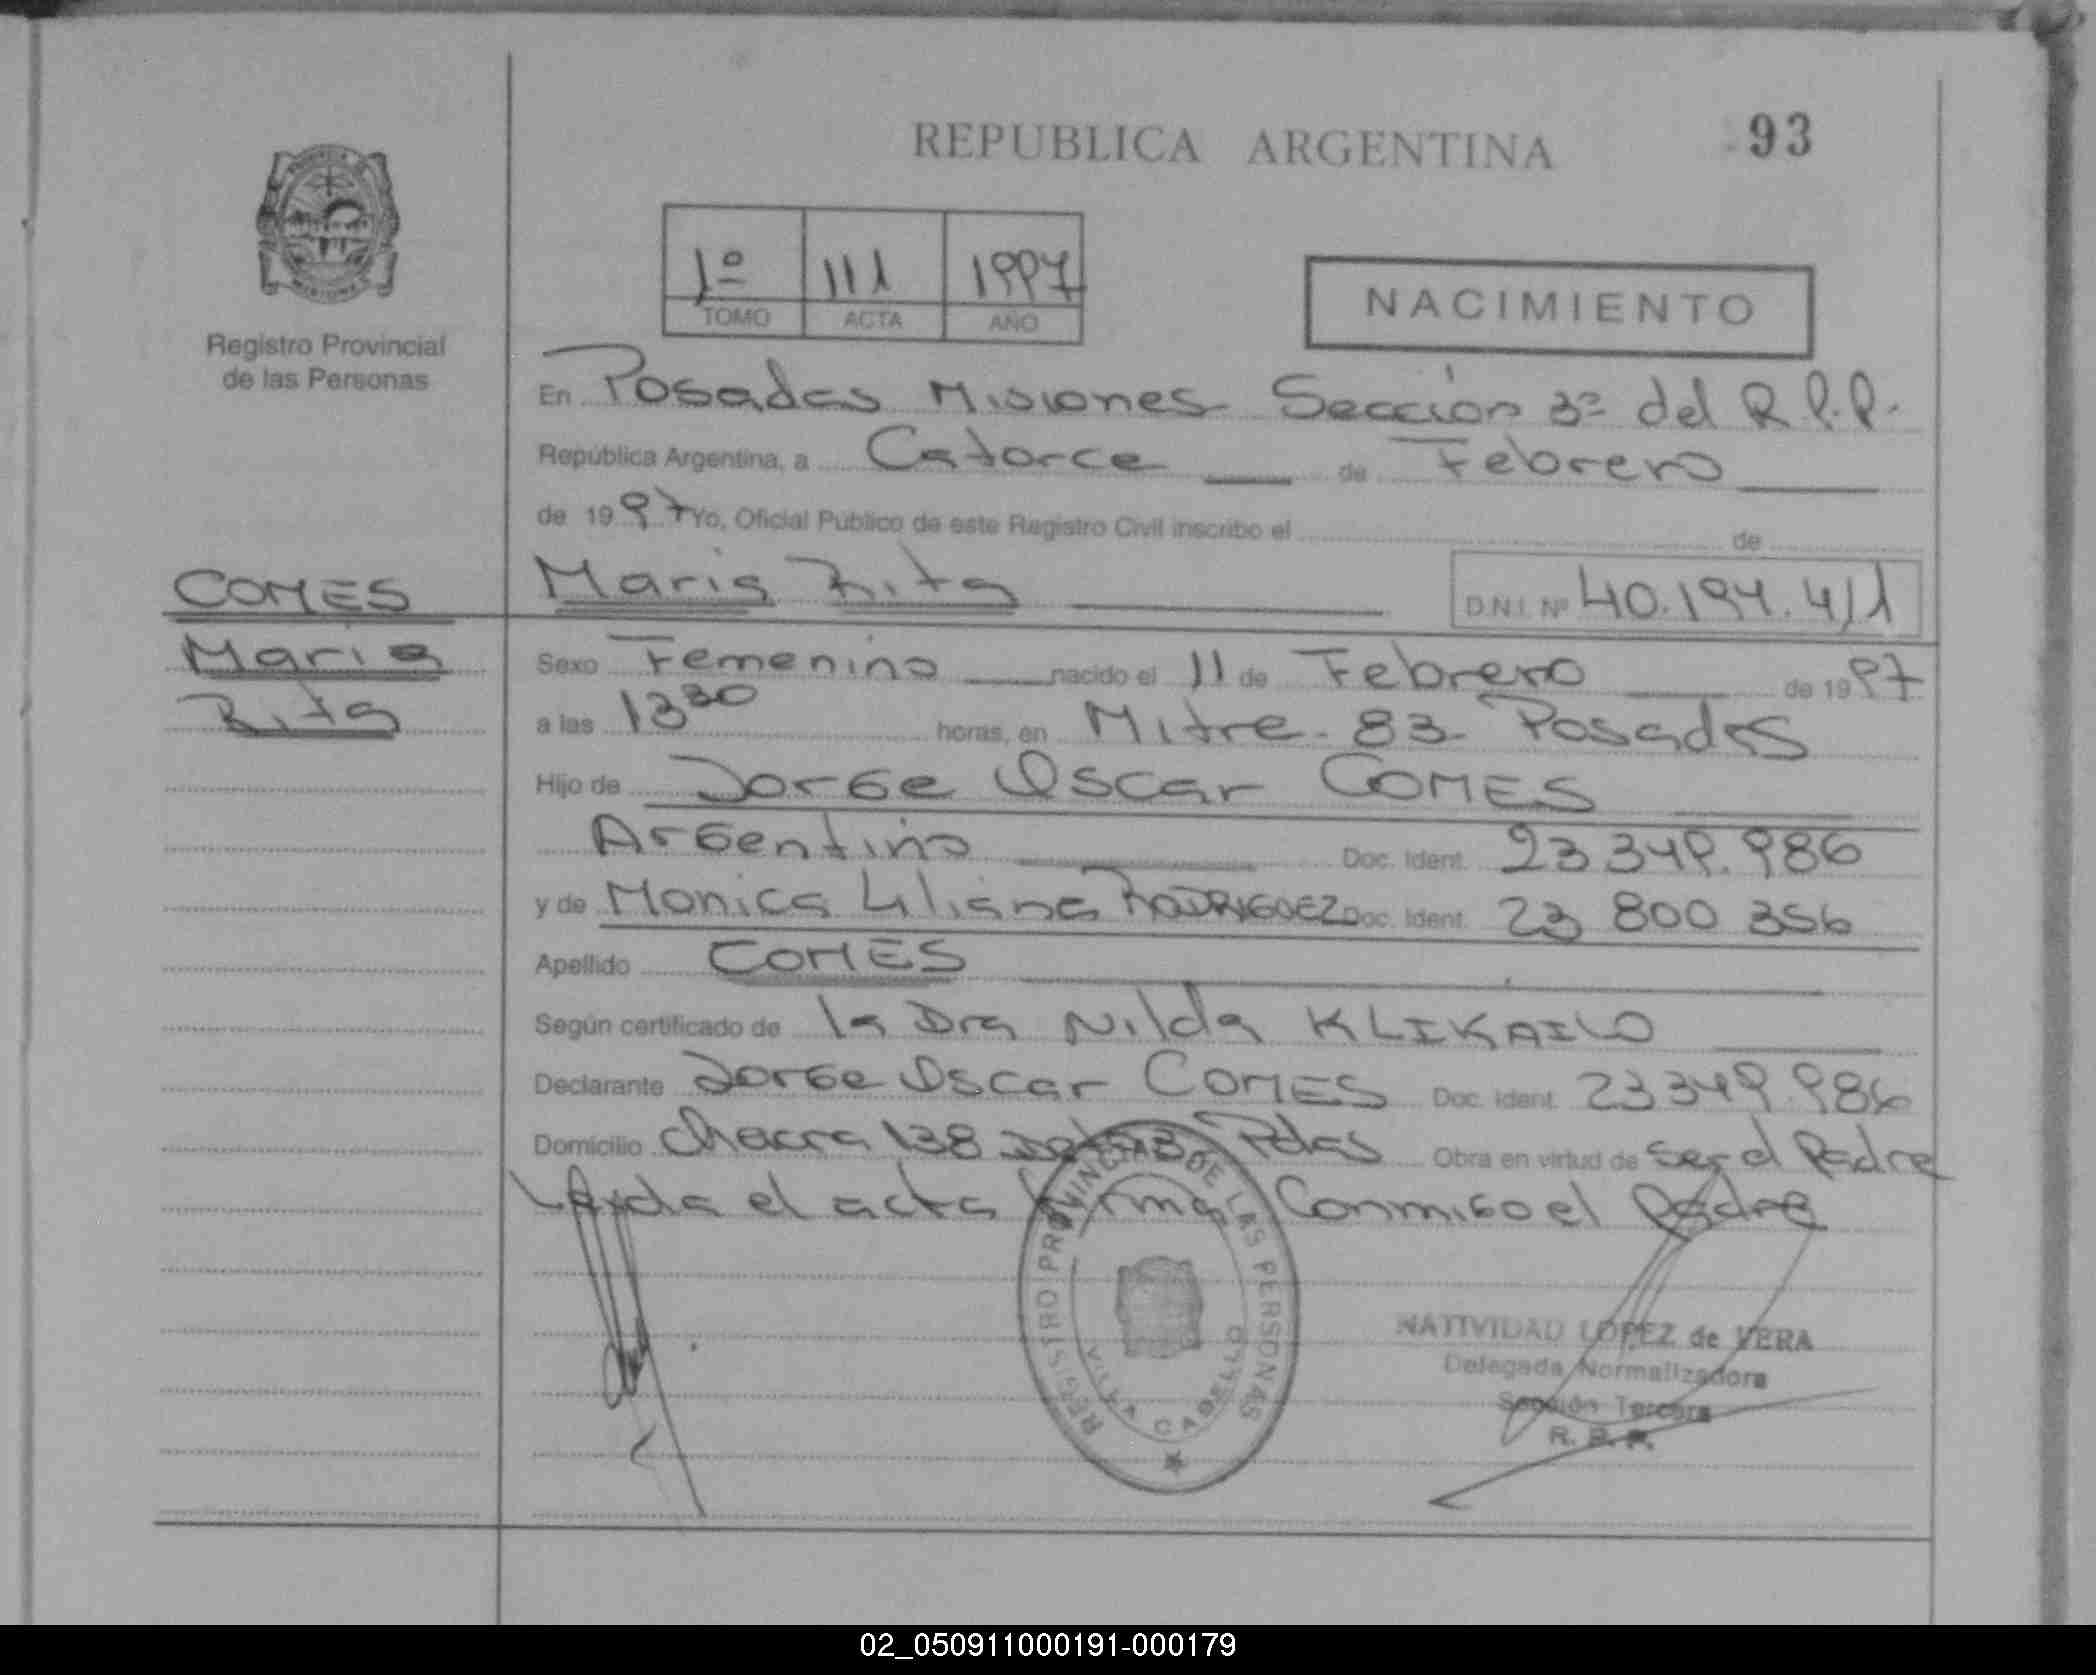 REPUBLICA ARGENTINA
93
1º 111 1997
TOMO ACTA AÑO
NACIMIENTO
Registro Provincial
de las Personas
En Posadas Misiones Sección 3ª del R.P.P.
República Argentina, a Catorce de Febrero
de 1997 Yo, Oficial Público de este Registro Civil inscribo el de
COMES
Maria Rita
D.N.I. Nº 40.194.411
Maria
Rita
Sexo Femenino nacido el 11 de Febrero de 1997
a las 13 30 horas, en Mitre - 83 - Posadas
Hijo de Jorge Oscar COMES
Argentino Doc. Ident. 23 349.986
y de Monica Liliana RODRIGUEZ Doc. Ident. 23 800 356
Apellido COMES
Según certificado de la Dra Nilda KLIKAILO
Declarante Jorge Oscar COMES Doc. Ident. 23349.986
Domicilio Chacra 138 Pdas Obra en virtud de ser el Padre
Leida el acta firma Conmigo el Padre
REGISTRO PROVINCIAL DE LAS PERSONAS
VILLA CABELLO
NATIVIDAD LOPEZ de VERA
Delegada Normalizadora
Sección Tercera
R. P. P.
02_050911000191-000179